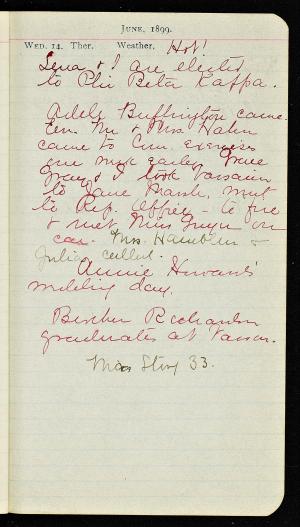 JUNE, 1899.
WED. 14. Ther. Weather. Hot!
Lena & I are elected
to Phi Beta Kappa.
Adele Buffington came.
Mr & Mrs. Hahn
came to Com. exercises
one week early. Grace
& I took
to Jane Marsh, went
to Rep. Office - to fire
& met Miss on
car. Mrs. Hamblen &
Julia called.
Annie Howard's
wedding day.
Richardson
graduates at Vassar.
Miss Story 33.